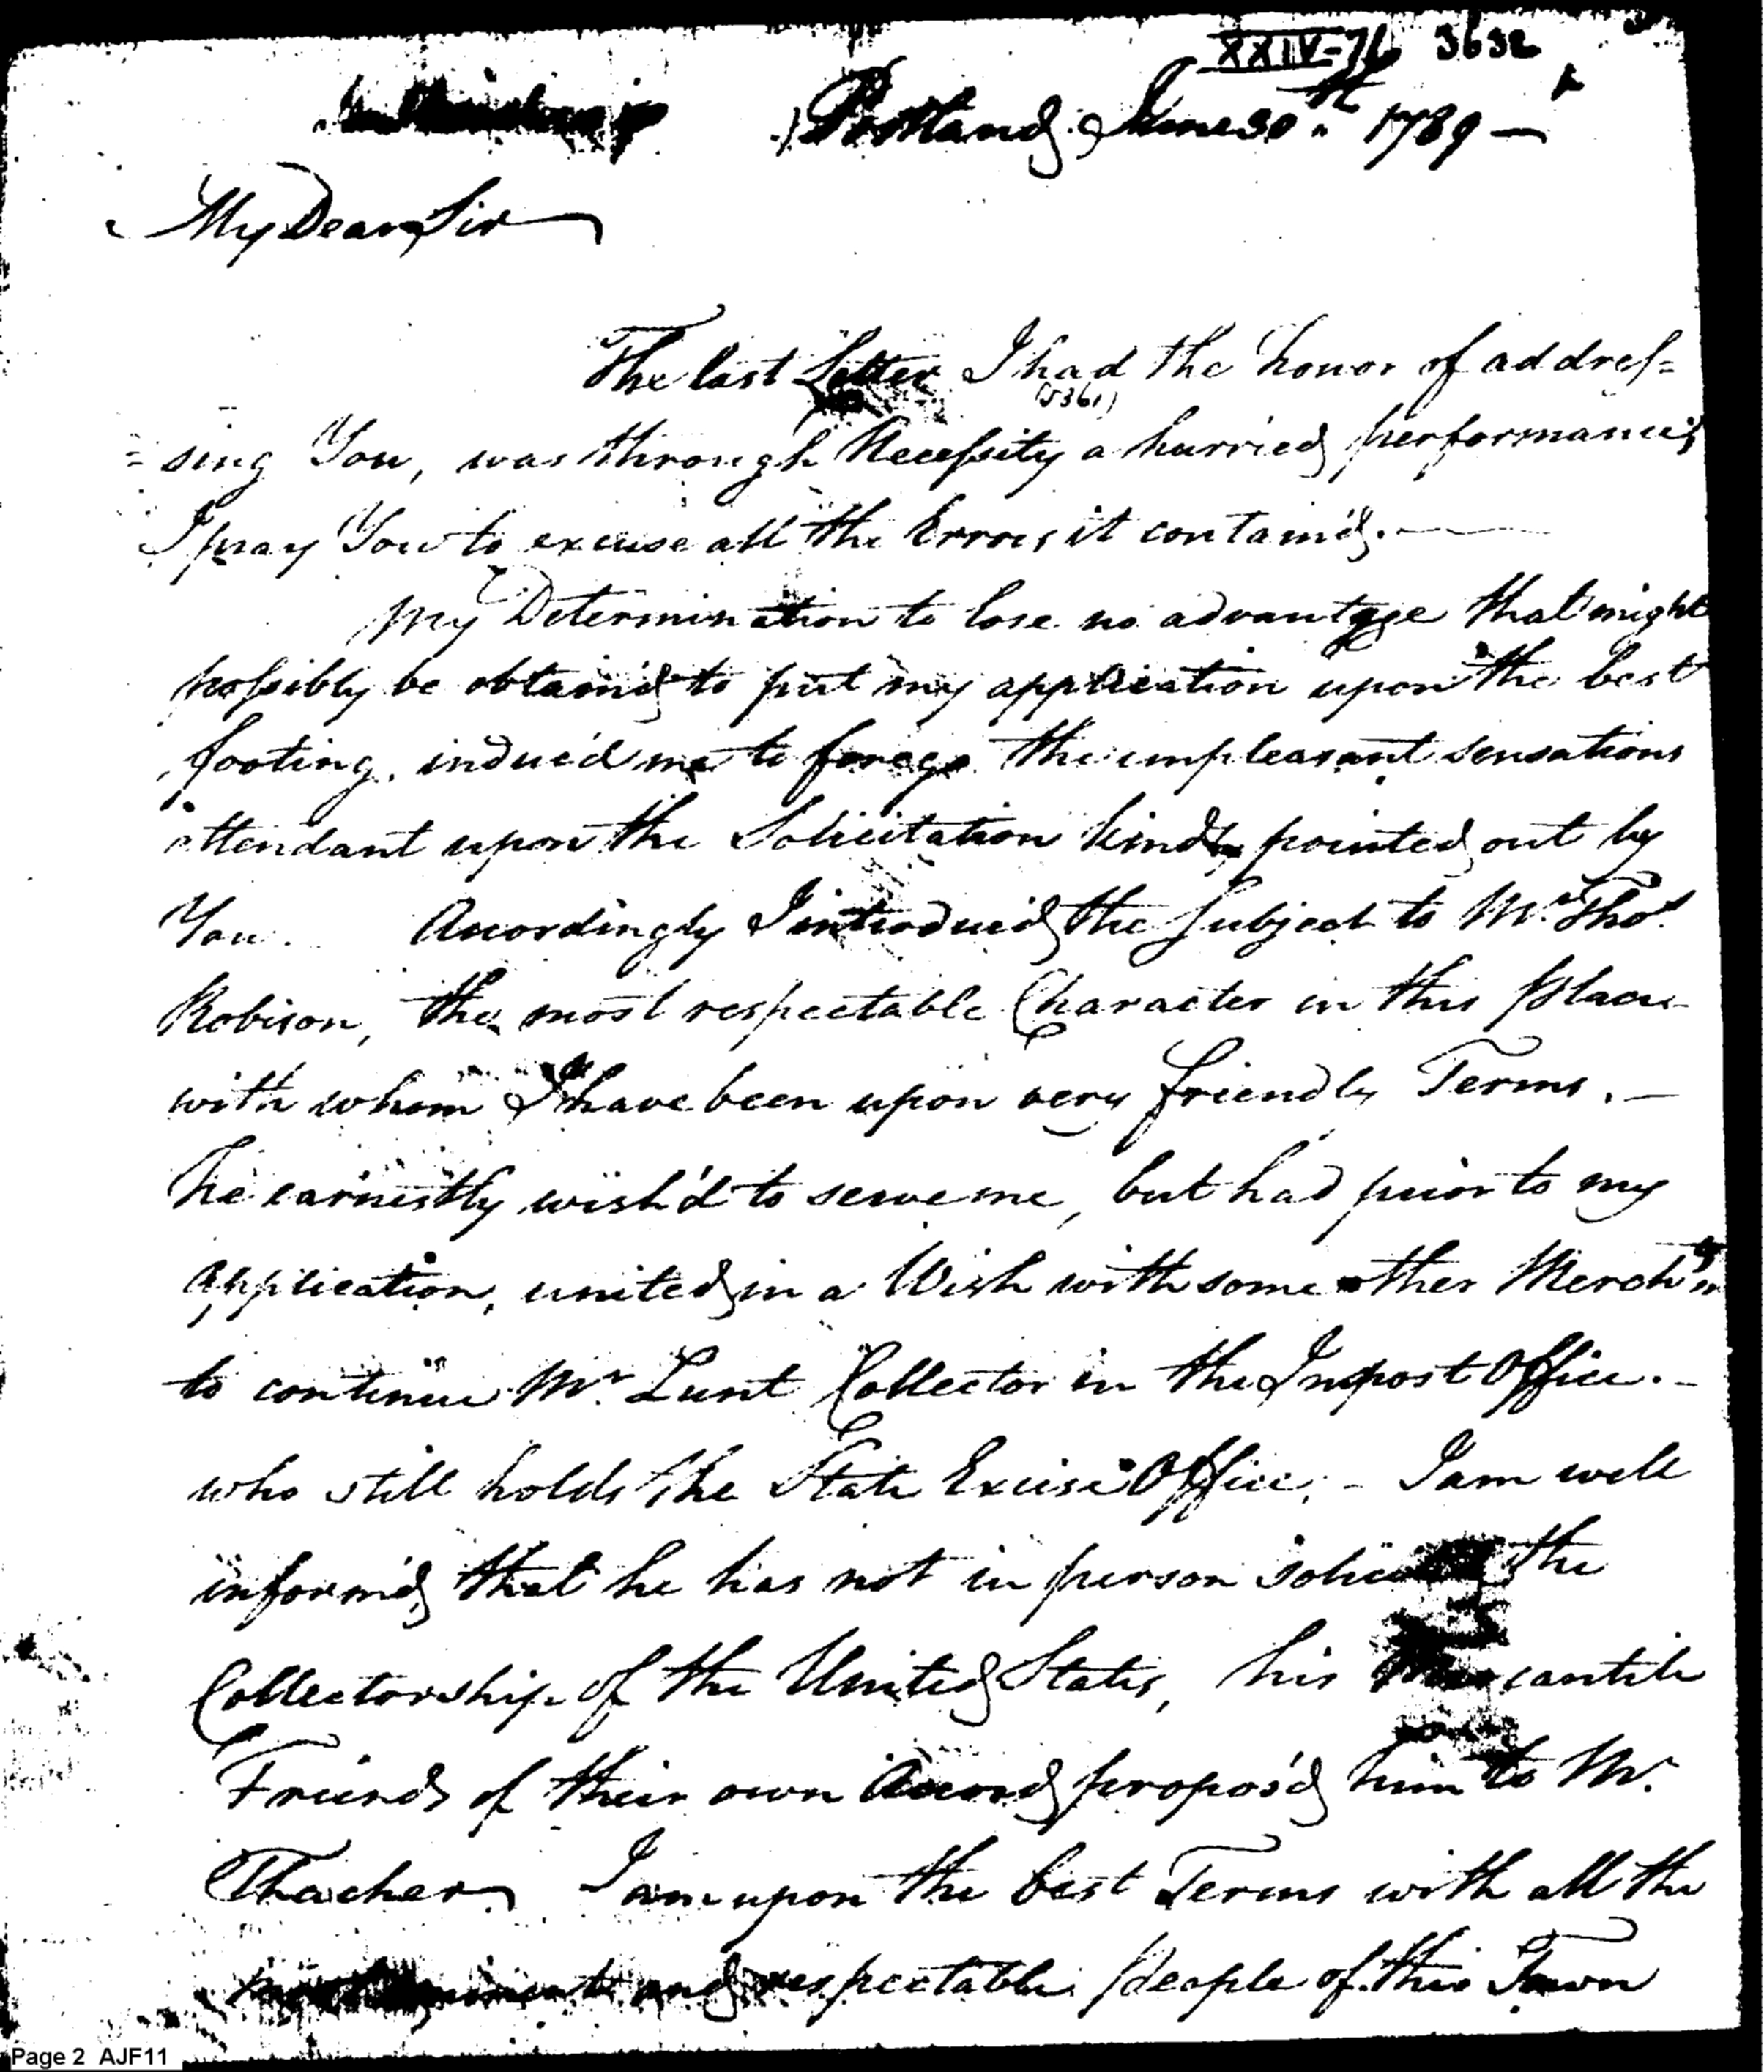 XXIV-76 3632
Portland June 30th 1789 —
My Dear Sir
The last Letter I had the honor of addres=
(5361)
=sing You, was through Necessity a hurried performance;
I pray You to excuse all the Errors it contain'd. —
My Determination to lose no advantage that might
possibly be obtain'd to put my application upon the best
footing, induc'd me to forego the unpleasant sensations
attendant upon the Solicitation kindly pointed out by
You. Accordingly I introduc'd the Subject to Mr. Thos.
Robison, the most respectable Character in this place
with whom I have been upon very friendly Terms. —
he earnestly wish'd to serve me, but had prior to my
application, united in a Wish with some other Merch
to continue Mr. Lunt Collector in the Impost Office. -
who still holds the State Excise Office. - I am well
inform'd that he has not in person the
Collectorship of the United States, his Mercantile
Friends of their own Accord propos'd him to Mr.
Thacher I am upon the best Terms with all the
and respectable people of this Town
Page 2 AJF11